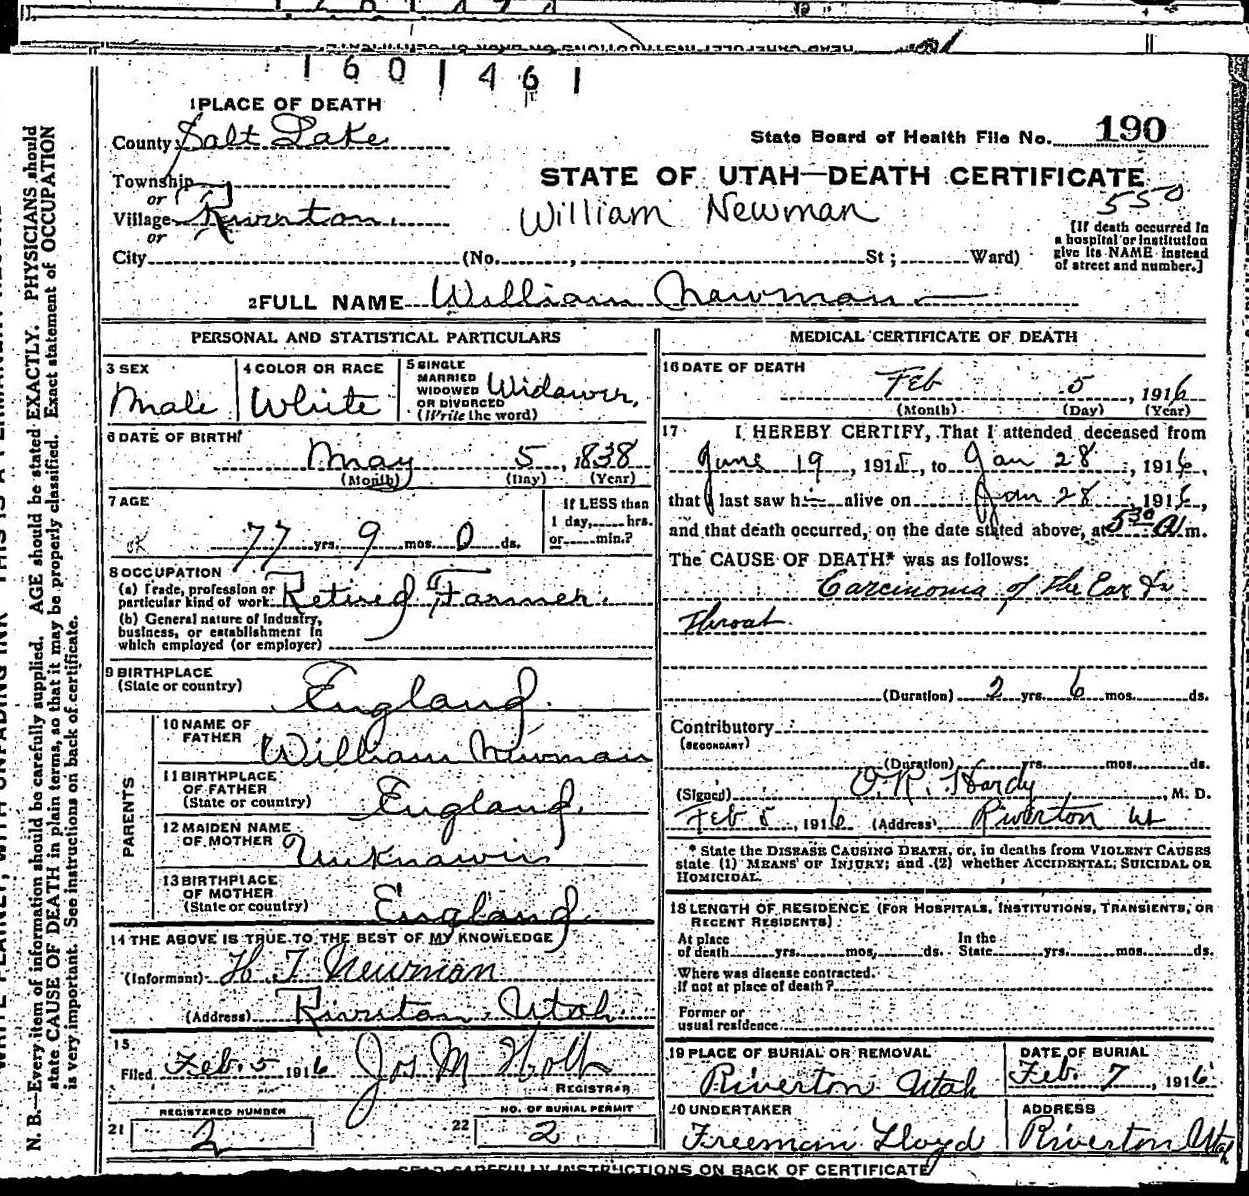 1601461
1 PLACE OF DEATH
County Salt Lake
State Board of Health File No. 190
Township
or
STATE OF UTAH—DEATH CERTIFICATE
550
Village Riverton.
William Newman
or
City (No. , St; Ward)
[If death occurred in
a hospital or institution
give its NAME instead
of street and number.]
2 FULL NAME William Newman
PERSONAL AND STATISTICAL PARTICULARS
3 SEX
Male
4 COLOR OR RACE
White
5 SINGLE
MARRIED
WIDOWED
OR DIVORCED
(Write the word)
Widower,
6 DATE OF BIRTH
May 5, 1838
(Month) (Day) (Year)
7 AGE
OK 77 yrs. 9 mos. 0 ds.
If LESS than
1 day, hrs.
or min.?
8 OCCUPATION
(a) Trade, profession or
particular kind of work Retired Farmer.
(b) General nature of industry,
business, or establishment in
which employed (or employer)
9 BIRTHPLACE
(State or country)
England.
PARENTS
10 NAME OF
FATHER
William Newman
11 BIRTHPLACE
OF FATHER
(State or country)
England.
12 MAIDEN NAME
OF MOTHER
Unknown
13 BIRTHPLACE
OF MOTHER
(State or country)
England.
14 THE ABOVE IS TRUE TO THE BEST OF MY KNOWLEDGE
(Informant) H T Newman
(Address) Riverton, Utah.
15
Filed Feb. 5 1916 Jos M Holt
REGISTRAR
REGISTERED NUMBER
21 2
NO. OF BURIAL PERMIT
22 2
MEDICAL CERTIFICATE OF DEATH
16 DATE OF DEATH
Feb 5, 1916
(Month) (Day) (Year)
17 I HEREBY CERTIFY, That I attended deceased from
June 19, 1915, to Jan 28, 1916,
that I last saw h alive on Jan 28 1916,
and that death occurred, on the date stated above, at 5 30 A.m.
The CAUSE OF DEATH* was as follows:
Carcinoma of the Ear &
Throat.
(Duration) 2 yrs. 6 mos. ds.
Contributory
(SECONDARY)
(Duration) yrs. mos. ds.
(Signed) O. R. Hardy, M. D.
Feb 5, 1916 (Address) Riverton Ut
* State the DISEASE CAUSING DEATH, or, in deaths from VIOLENT CAUSES
state (1) MEANS OF INJURY; and (2) whether ACCIDENTAL, SUICIDAL OR
HOMICIDAL.
18 LENGTH OF RESIDENCE (FOR HOSPITALS, INSTITUTIONS, TRANSIENTS, OR
RECENT RESIDENTS)
At place
of death yrs. mos. ds.
In the
State yrs. mos. ds.
Where was disease contracted.
if not at place of death?
Former or
usual residence
19 PLACE OF BURIAL OR REMOVAL
Riverton Utah
DATE OF BURIAL
Feb. 7, 1916
20 UNDERTAKER
Freeman Lloyd
ADDRESS
Riverton Utah
READ CAREFULLY INSTRUCTIONS ON BACK OF CERTIFICATE
N. B.—Every item of information should be carefully supplied. AGE should be stated EXACTLY. PHYSICIANS should
state CAUSE OF DEATH in plain terms, so that it may be properly classified. Exact statement of OCCUPATION
is very important. See instructions on back of certificate.